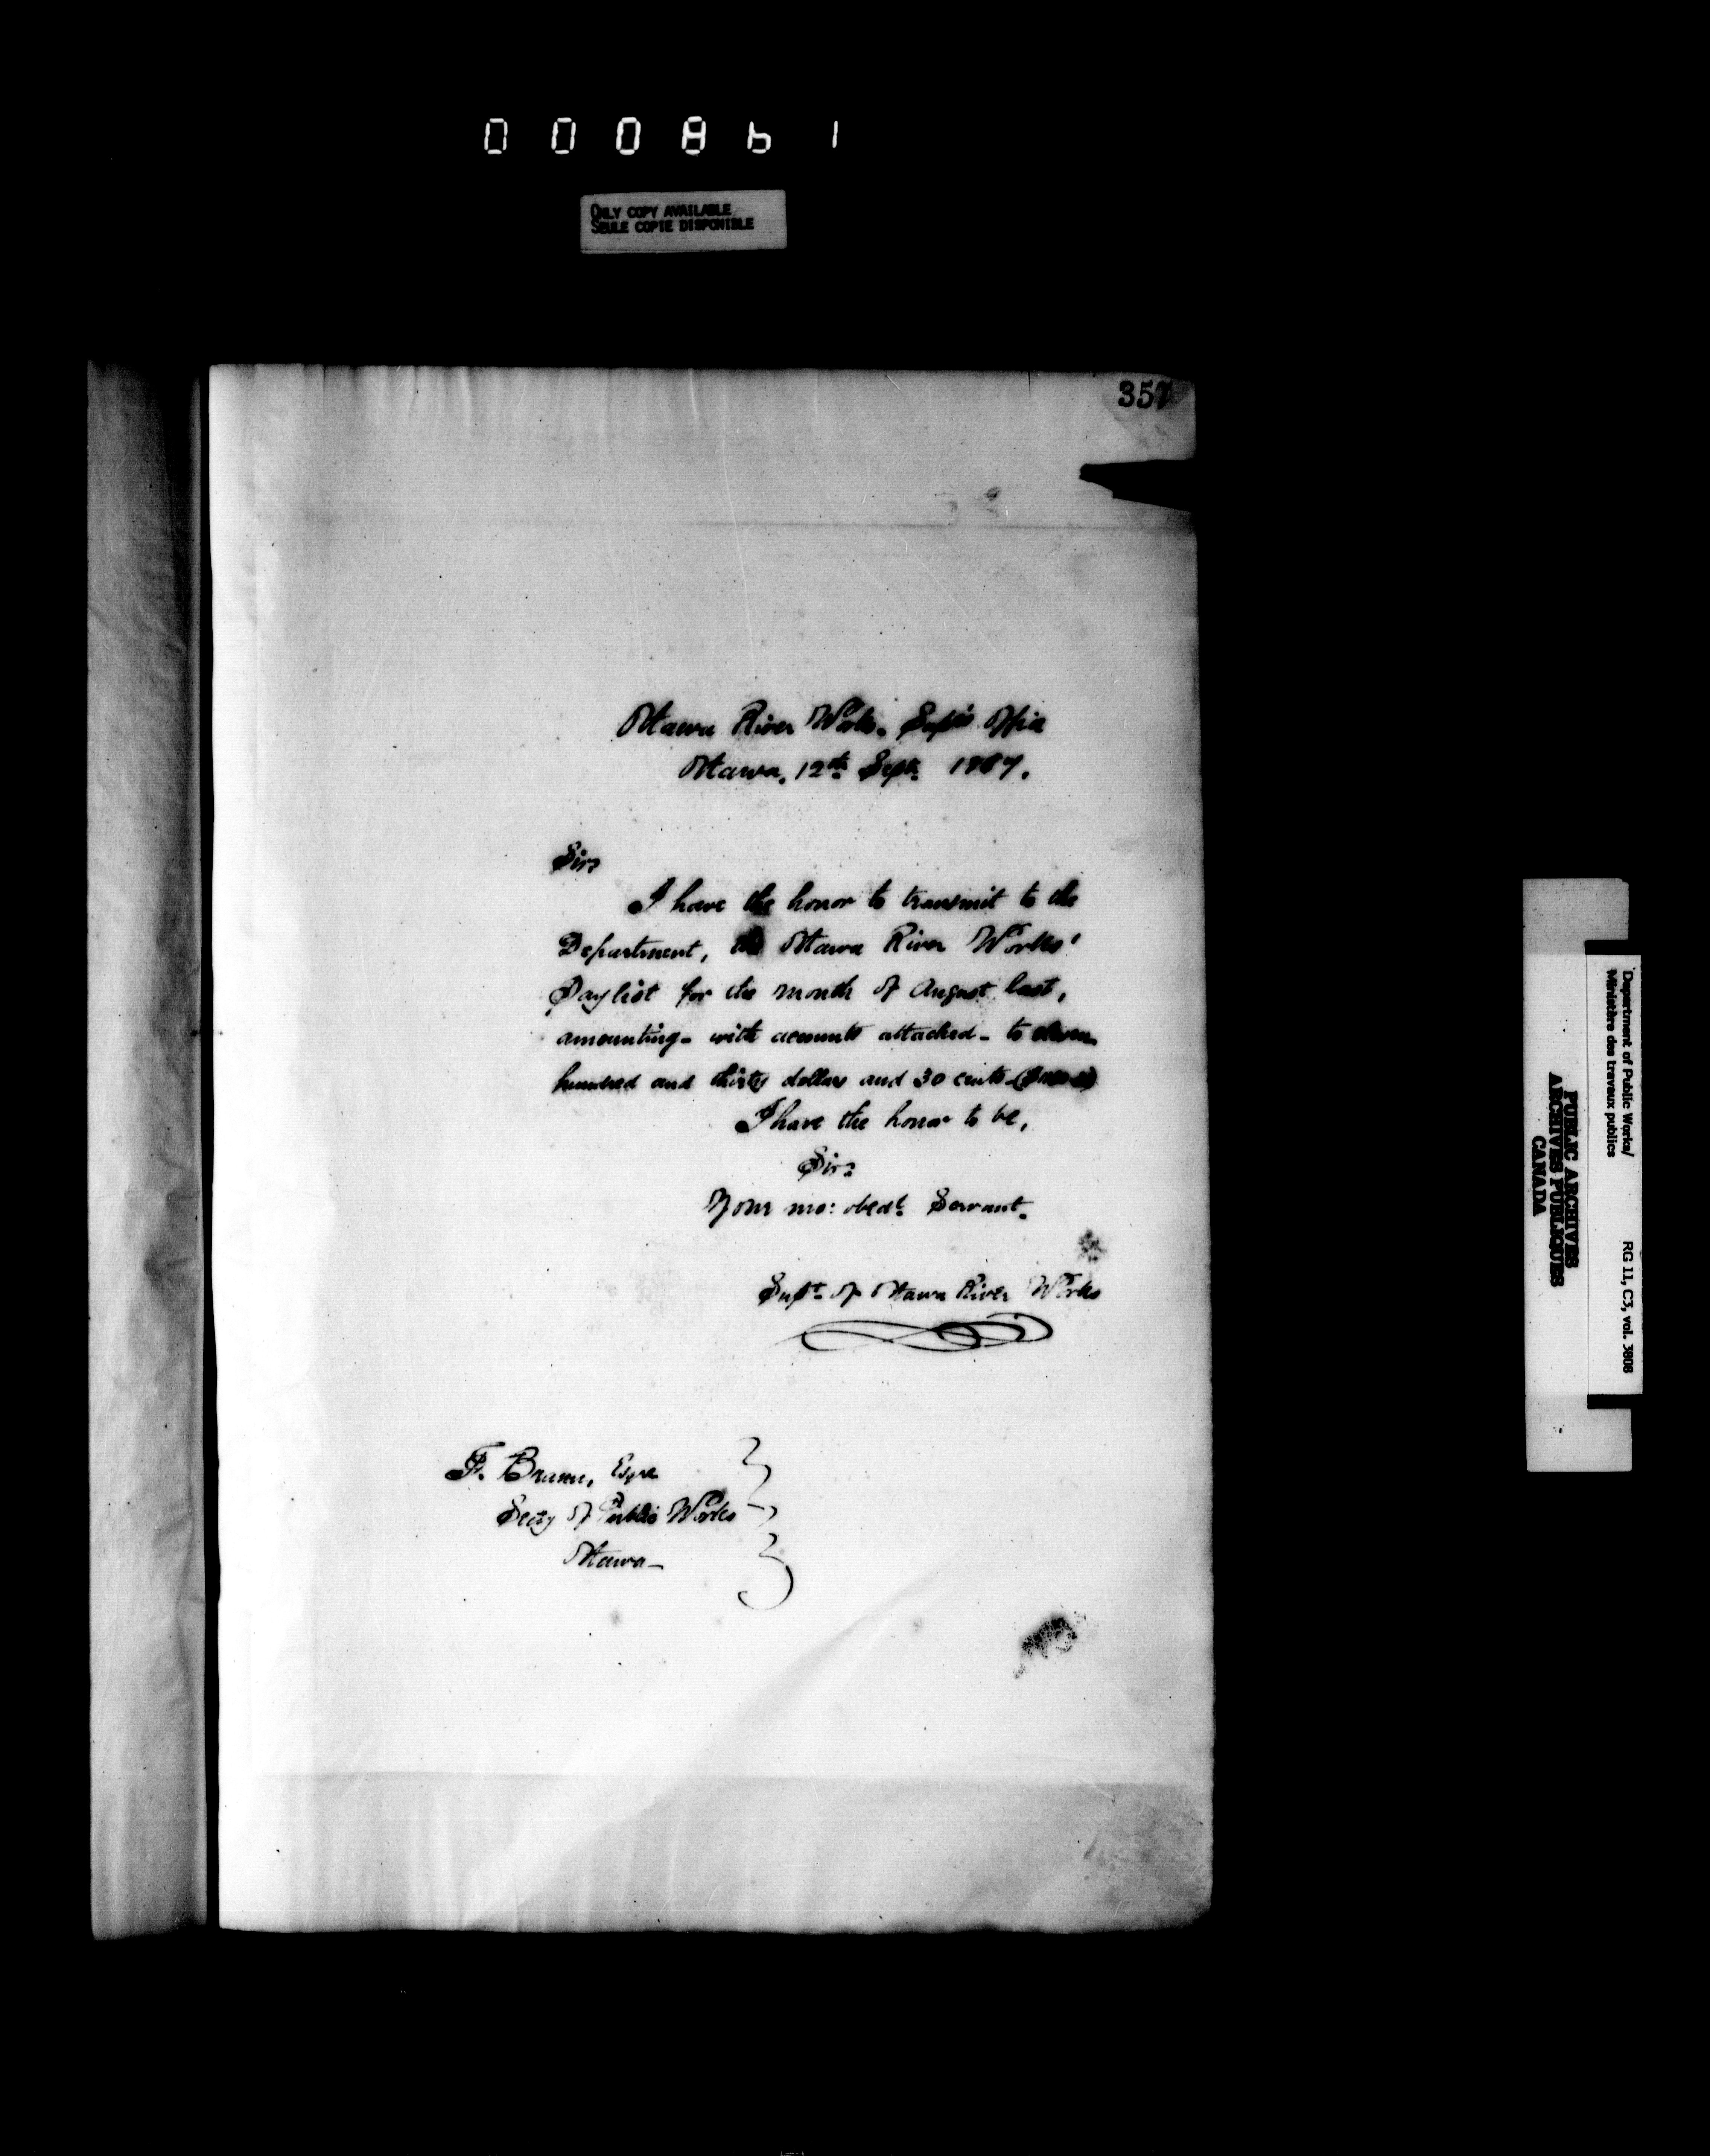 000861
ONLY COPY AVAILABLE
SEULE COPIE DISPONIBLE
357
Ottawa River Works. Supt's Office
Ottawa, 12th Sept. 1867.
Sir,
I have the honor to transmit to the
Department, the Ottawa River Works'
Paylist for the month of August last,
amounting - with accounts attached - to eleven
hundred and thirty dollars and 30 cents
I have the honor to be,
Sir,
Your mo: obedt. Servant.
Supt. of Ottawa River Works
F. Braun, Esqre
Secty of Public Works
Ottawa -
Department of Public Works/
Ministère des travaux publics
RG 11, C3, vol. 3808
PUBLIC ARCHIVES
ARCHIVES PUBLIQUES
CANADA